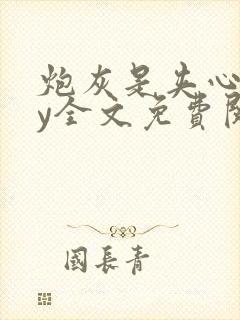 炮灰是失心
y全文免費閱
國長青